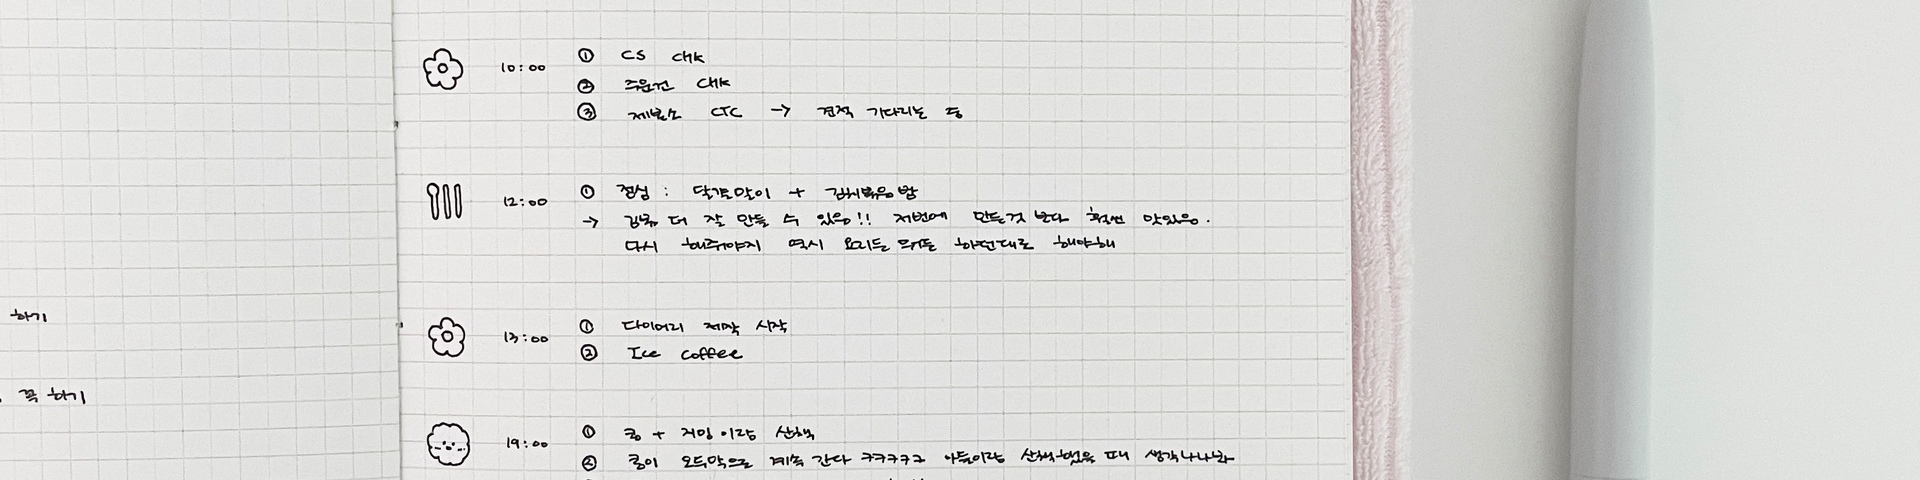 하기
꼭 하기
10:00
① CS CHK
② 주문건 CHK
③ 제본소 CTC → 견적 기다리는 중
12:00
① 점심 : 달걀말이 + 김치볶음밥
→ 감튀 더 잘 만들 수 있음!! 저번에 만든것 보다 훨씬 맛있음.
다시 해줘야지 역시 요리든 뭐든 하던대로 해야해
13:00
① 다이어리 제작 시작
② Ice coffee
19:00
① 콩 + 이랑 산책
② 콩이 오두막으로 계속 간다 ㅋㅋㅋㅋㅋ 아들이랑 산책했을 때 생각나나봐